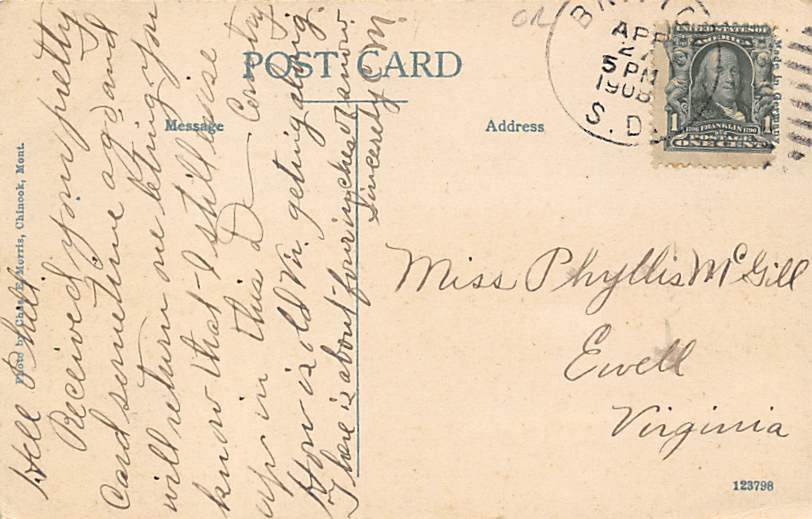 POST CARD
Message
Address
Photo by Chas. E. Morris, Chinook, Mont.
Well Phil
Received your pretty
card sometime ago and
will return one letting you
know that I still cruise
up in this D— Contry
How is old Vir. geting along.
There is about four inches of snow
Sincerely M.
BRITTO
APR
5 PM
1908
S. D.
UNITED STATES OF
AMERICA
1
1706 FRANKLIN 1790
1
POSTAGE
ONE CENT
Made in Germany
Miss Phyllis McGill
Ewell
Virginia
123798